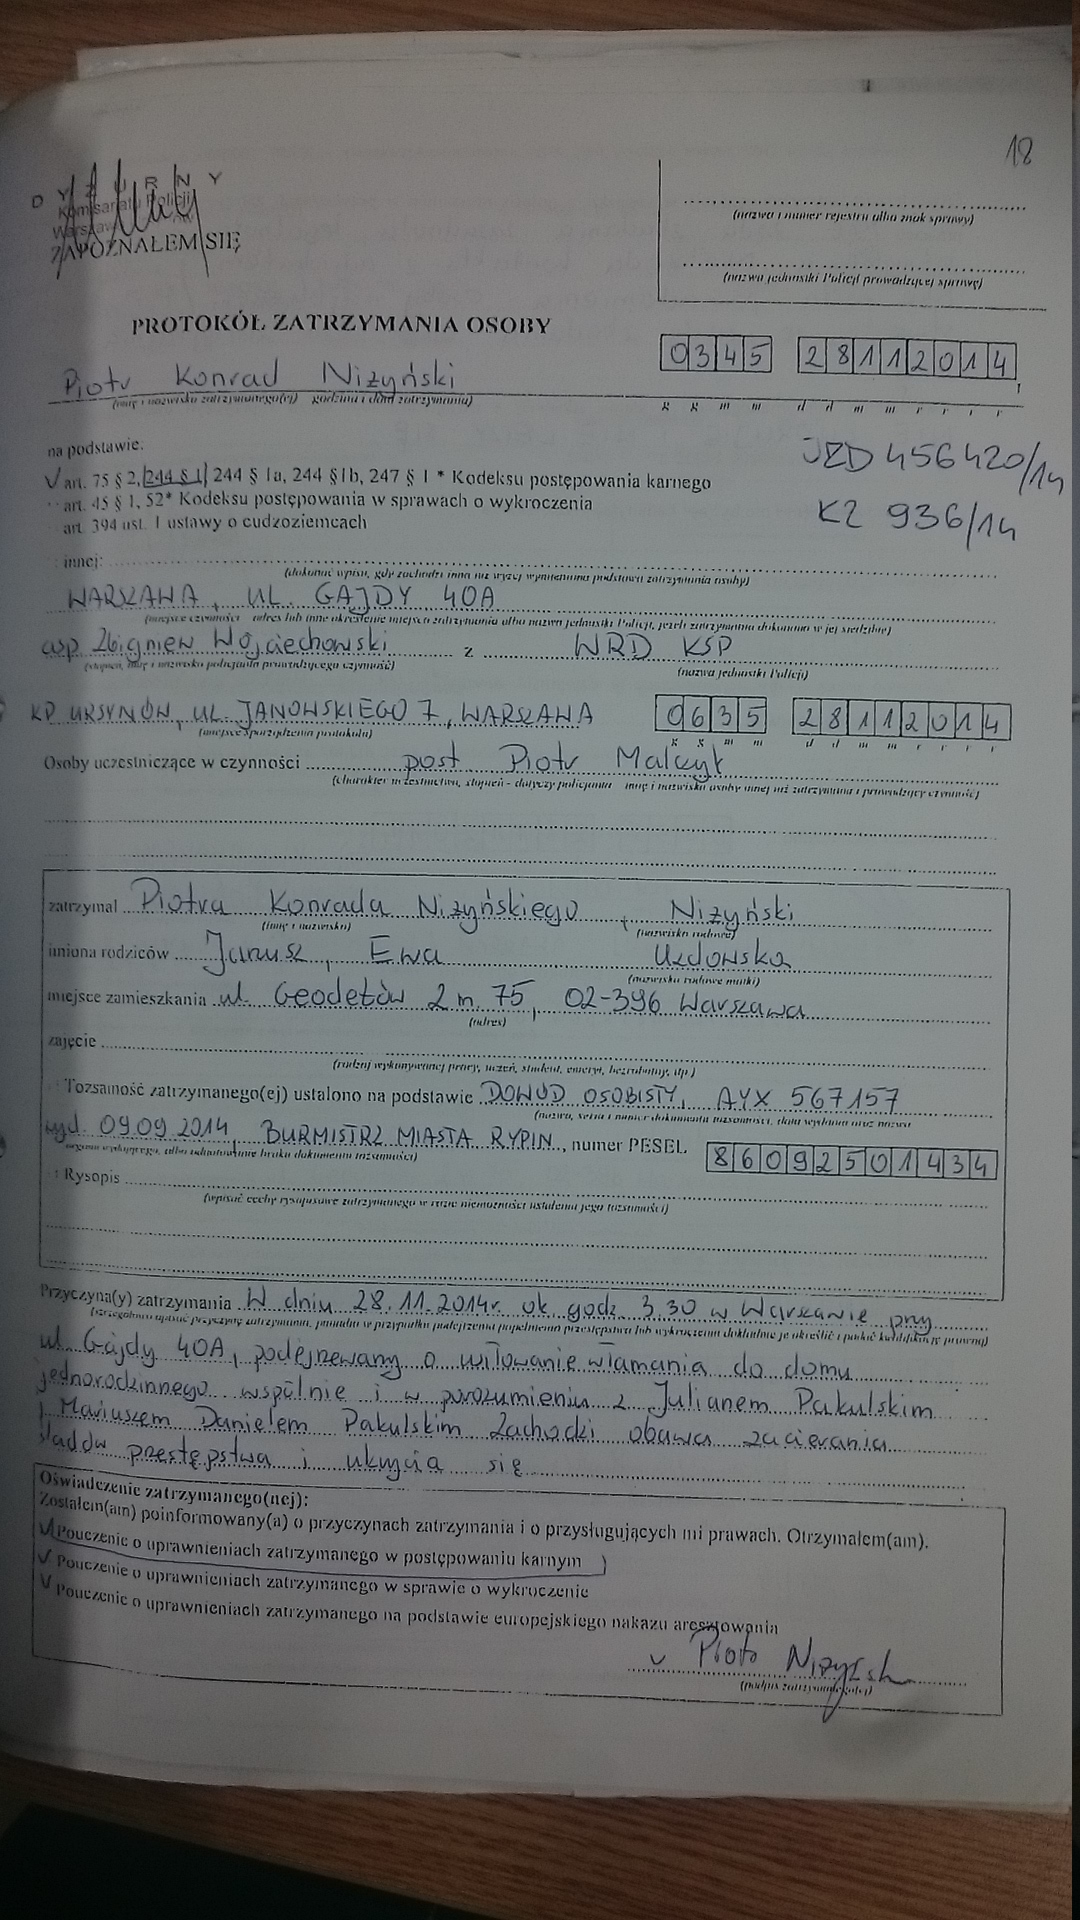 18
D Y Ż U R N Y
Komisariatu Policji
ZAPOZNAŁEM SIĘ
(nazwa i numer rejestru albo znak sprawy)
(nazwa jednostki Policji prowadzącej sprawę)
PROTOKÓŁ ZATRZYMANIA OSOBY
0345 28112014
Piotr Konrad Niżyński
(imię i nazwisko zatrzymanego(ej) godzina i data zatrzymania)
g g m m d d m m r r r r
na podstawie:
V art. 75 § 2, 244 § 1, 244 § 1a, 244 §1b, 247 § 1 * Kodeksu postępowania karnego
JZD 456420/14
art. 45 § 1, 52* Kodeksu postępowania w sprawach o wykroczenia
KZ 936/14
art. 394 ust. 1 ustawy o cudzoziemcach
innej:
(dokonać wpisu, gdy zachodzi inna niż wyżej wymieniona podstawa zatrzymania osoby)
WARSZAWA, UL. GAJDY 40A
(miejsce czynności adres lub inne określenie miejsca zatrzymania albo nazwa jednostki Policji, jeżeli zatrzymania dokonano w jej siedzibie)
asp Zbigniew Wojciechowski z WRD KSP
(stopień, imię i nazwisko policjanta prowadzącego czynność) (nazwa jednostki Policji)
KP URSYNÓW, UL. JANOWSKIEGO 7, WARSZAWA 0635 28112014
(miejsce sporządzenia protokołu) g g m m d d m m r r r r
Osoby uczestniczące w czynności post. Piotr Malczyk
(charakter uczestnictwa, stopień - dotyczy policjanta imię i nazwisko osoby innej niż zatrzymana i prowadzący czynność)
zatrzymał Piotra Konrada Niżyńskiego, Niżyński
(imię i nazwisko) (nazwisko rodowe)
imiona rodziców Janusz, Ewa Uzdowska
(nazwisko rodowe matki)
miejsce zamieszkania ul. Geodetów 2 m. 75, 02-396 Warszawa
(adres)
zajęcie
(rodzaj wykonywanej pracy, uczeń, student, emeryt, bezrobotny, itp.)
Tożsamość zatrzymanego(ej) ustalono na podstawie DOWÓD OSOBISTY, AYX 567157
(nazwa, seria i numer dokumentu tożsamości, data wydania oraz nazwa
wyd. 09.09.2014, BURMISTRZ MIASTA RYPIN, numer PESEL 86092501434
organu wydającego, albo odnotowanie braku dokumentu tożsamości)
Rysopis
(wpisać cechy rysopisowe zatrzymanego w razie niemożności ustalenia jego tożsamości)
Przyczyna(y) zatrzymania W dniu 28.11.2014r. ok. godz. 3.30 w Warszawie przy
(szczegółowo opisać przyczynę zatrzymania, ponadto w przypadku podejrzenia popełnienia przestępstwa lub wykroczenia dokładnie je określić i podać kwalifikację prawną)
ul. Gajdy 40A, podejrzewany o usiłowanie włamania do domu
jednorodzinnego wspólnie i w porozumieniu z Julianem Pakulskim
i Mariuszem Danielem Pakulskim Zachodzi obawa zacierania
śladów przestępstwa i ukrycia się
Oświadczenie zatrzymanego(nej):
Zostałem(am) poinformowany(a) o przyczynach zatrzymania i o przysługujących mi prawach. Otrzymałem(am).
V Pouczenie o uprawnieniach zatrzymanego w postępowaniu karnym
V Pouczenie o uprawnieniach zatrzymanego w sprawie o wykroczenie
V Pouczenie o uprawnieniach zatrzymanego na podstawie europejskiego nakazu aresztowania
v Piotr Niżyński
(podpis zatrzymanego(ej))